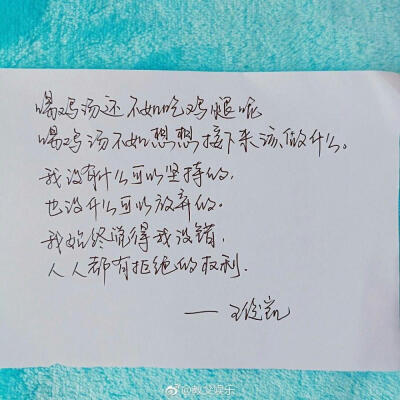 喝鸡汤还不如吃鸡腿呢
喝鸡汤不如想想接下来该做什么。
我没有什么可以坚持的,
也没什么可以放弃的。
我始终觉得我没错,
人人都有拒绝的权利.
——王俊凯